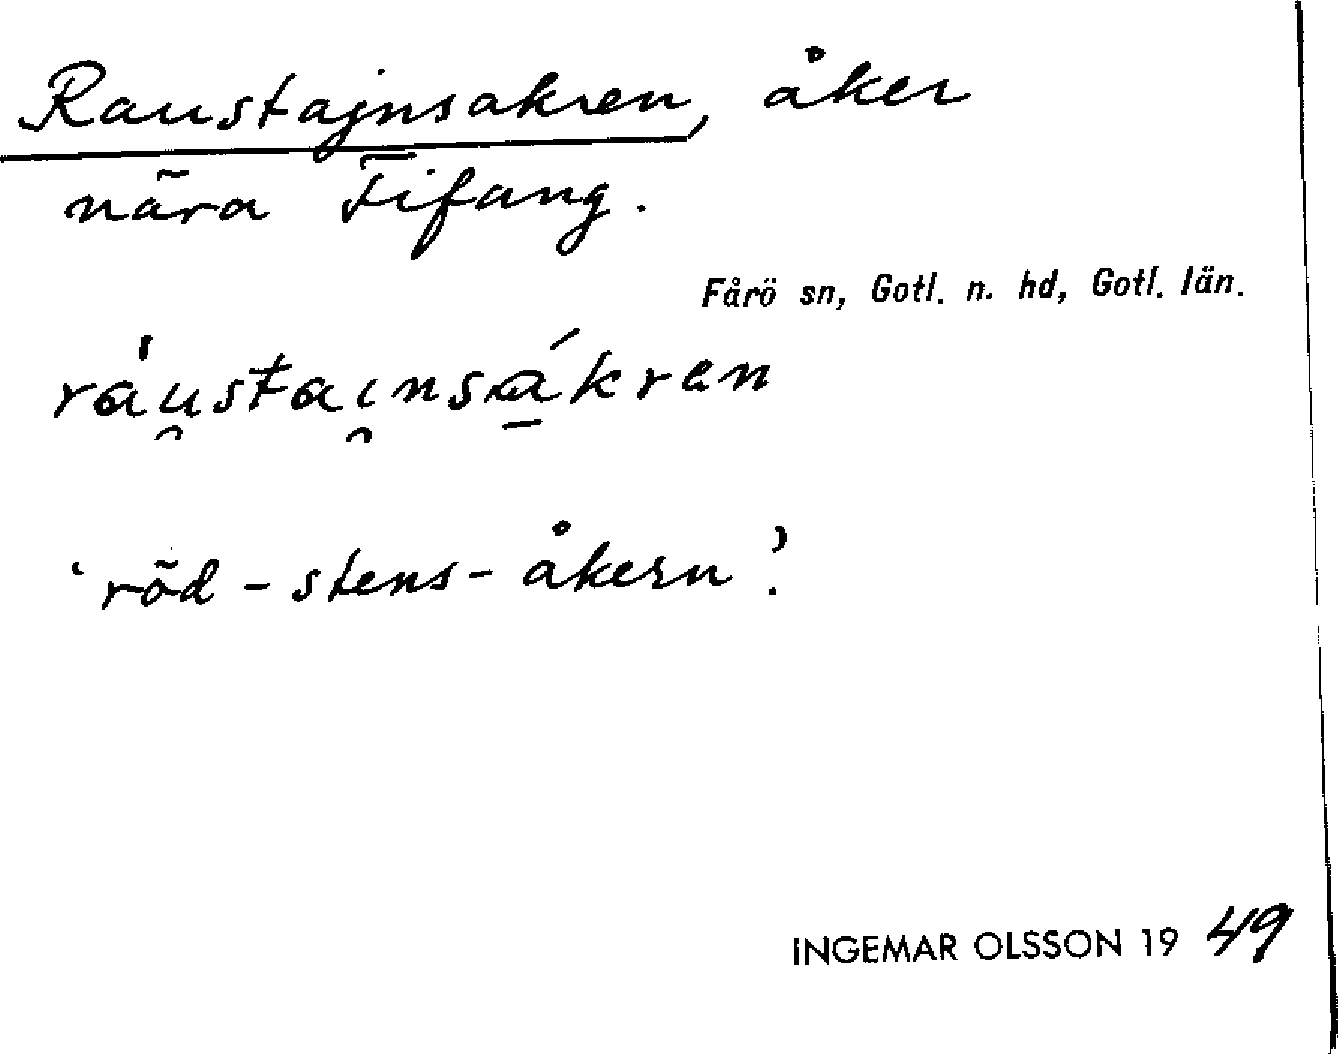 Raustajnsakren, åker
nära Fifang.
Fårö sn, Gotl. n. hd, Gotl. län.
rau̯stai̯nsa̱kren
‘röd-stens-åkern’.
INGEMAR OLSSON 19 49